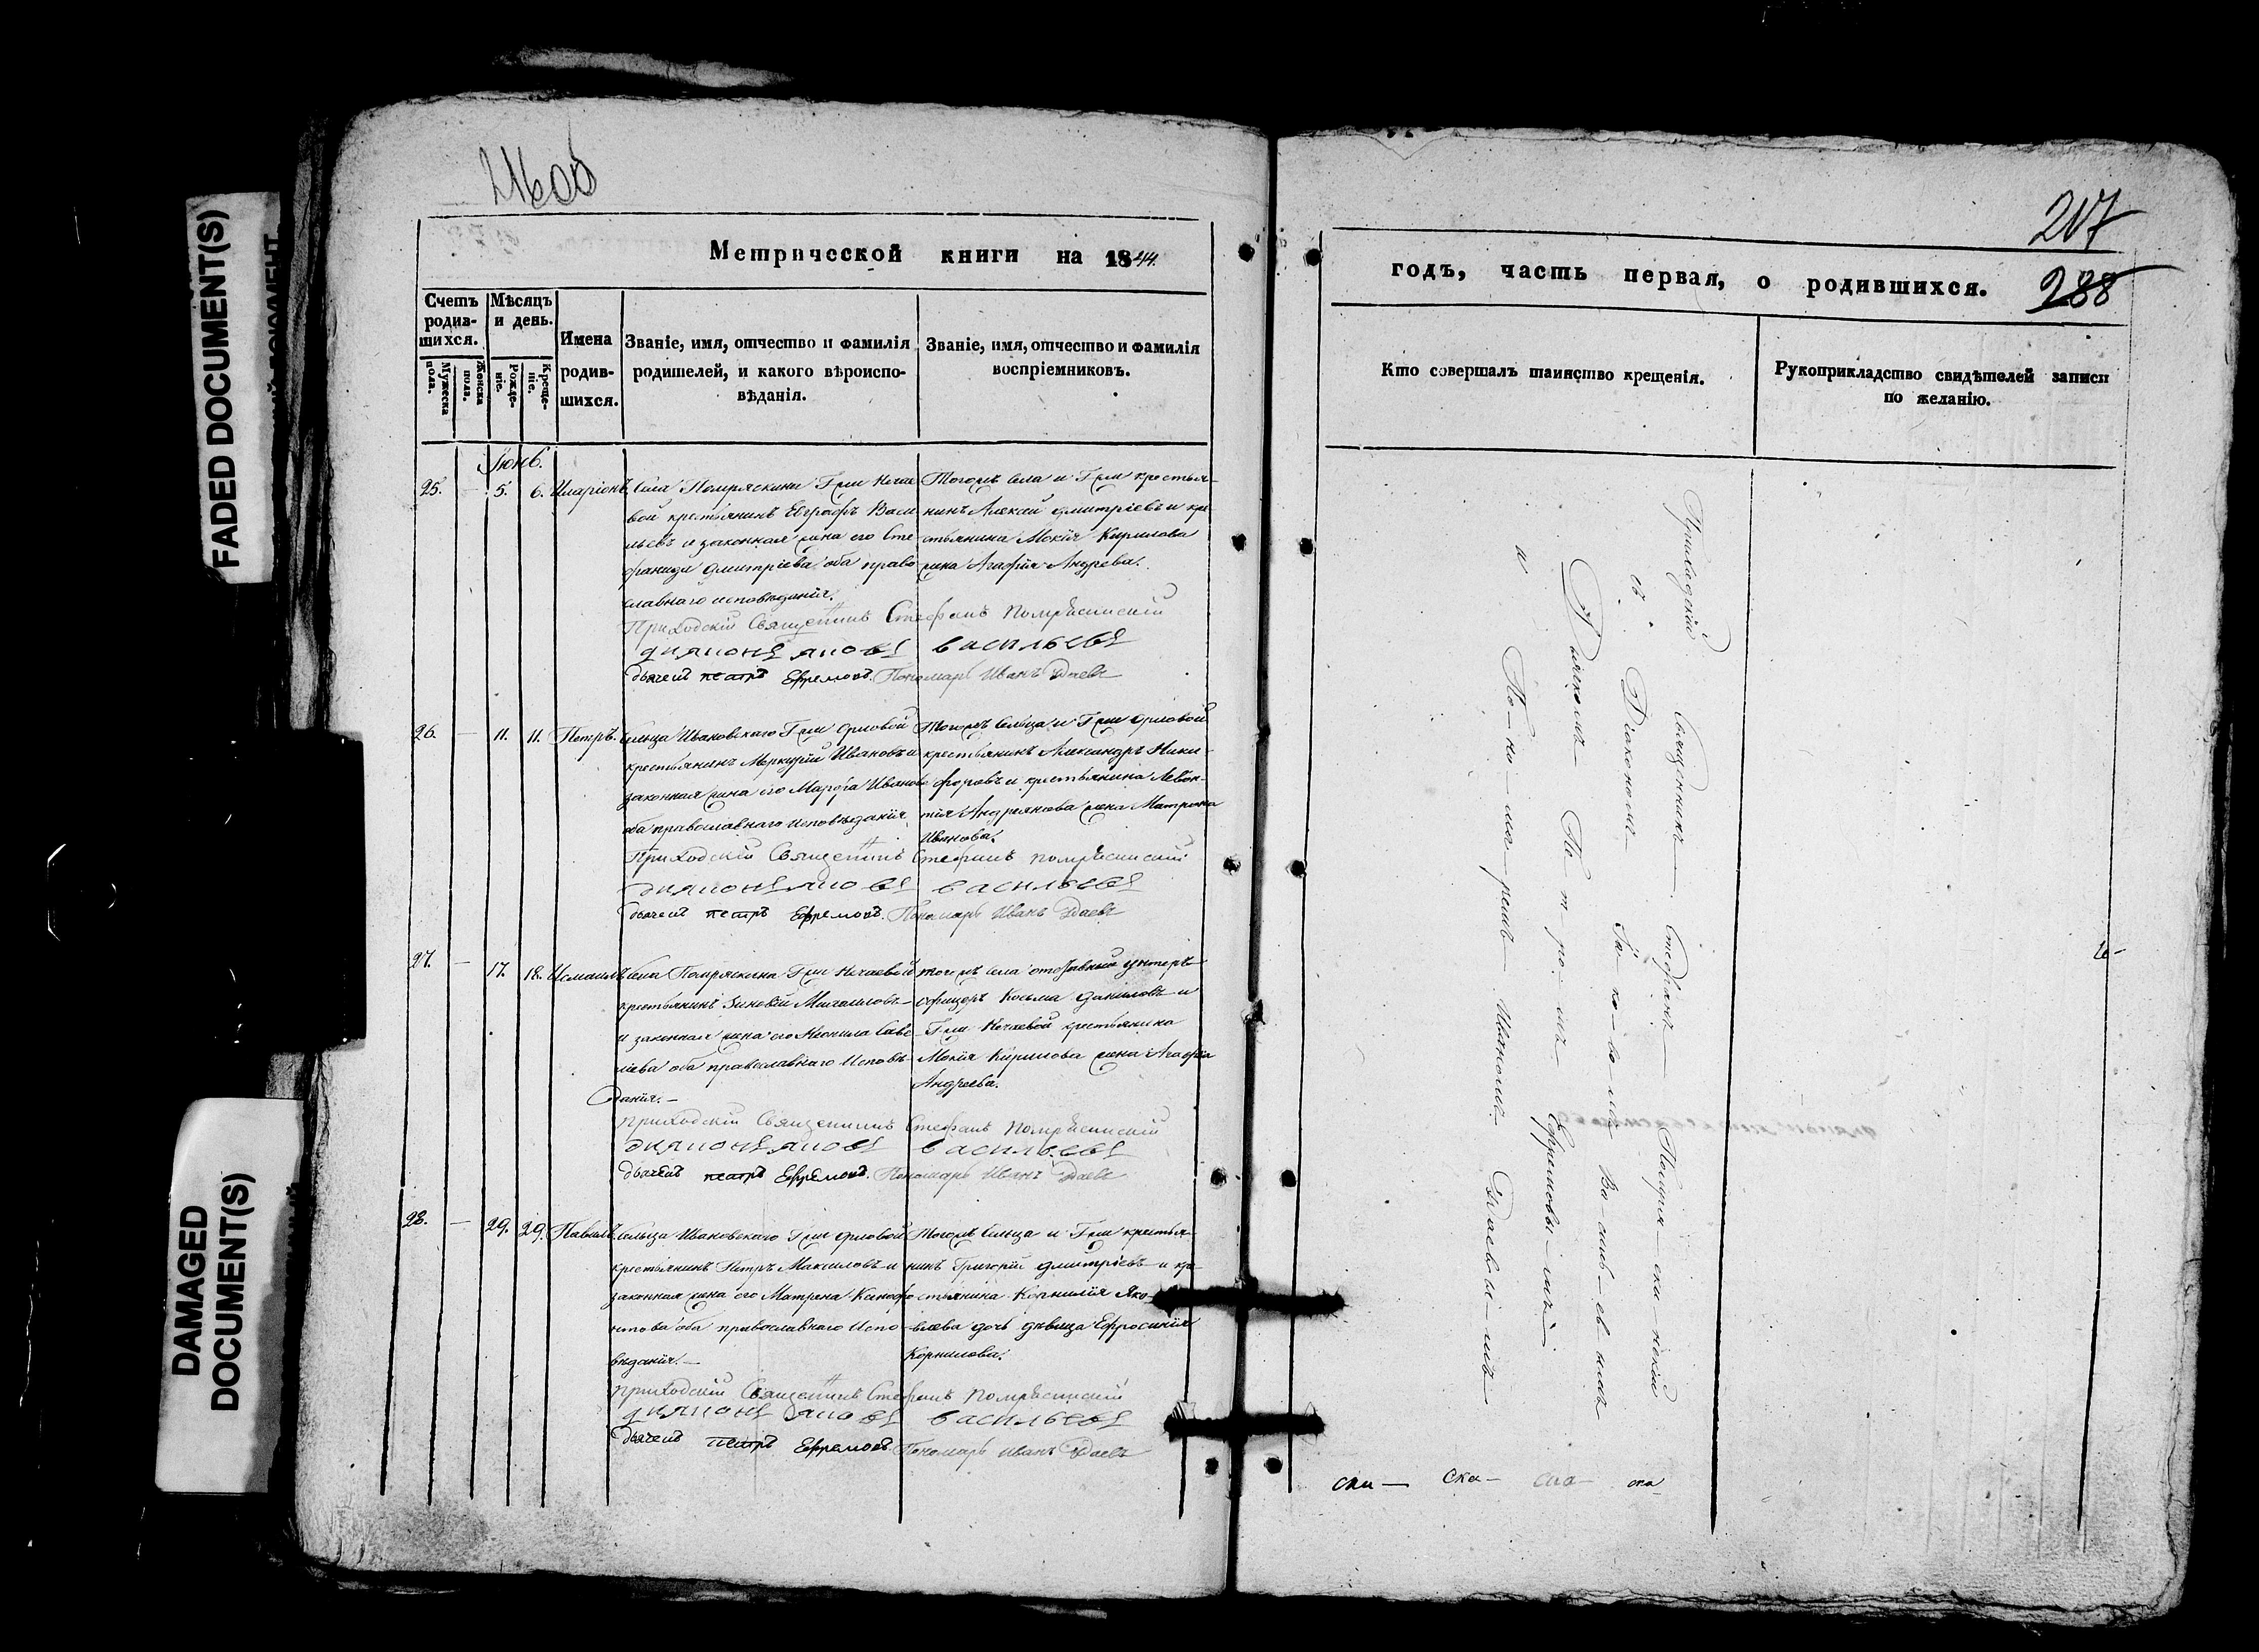 207
288
Метрической книги на 1844.
годъ, часть первая, о родившихся.
Счетъ родив-шихся.
Мужеска пола.
Женска пола.
Мѣсяцъ и день.
Рожде-ніе.
Креще-ніе.
Имена родив-шихся.
Званіе, имя, отчество и фамилія
родителей, и какого вѣроиспо-
вѣданія.
Званіе, имя, отчество и фамилія
воспріемниковъ.
Кто совершалъ таинство крещенія.
Рукоприкладство свидѣтелей записи
по желанію.
Іюнь.
25. — 5. 6. Иларіонъ
Села Помряскина Г-жи Нечае-
вой крестьянинъ Евграфъ Васи-
льевъ и законная жена его Сте-
фанида Дмитріева оба право-
славнаго исповѣданія.
Тогожъ села и Г-жи крестья-
нинъ Алексѣй Дмитріевъ и кре-
стьянина Мокія Кирилова
жена Агафія Андреева.
Приходскій Священникъ Стефанъ
Васильевъ
Петръ Ефремовъ. Пономарь Иванъ
26. — 11. 11. Петръ.
Сельца Ивановскаго Г-жи Орловой
крестьянинъ Меркурій Ивановъ и
законная жена его Марфа Иванова
оба православнаго исповѣданія.
Тогожъ Сельца и Г-жи Орловой
крестьянинъ Александръ Ники-
форовъ и крестьянина Левон-
тія Андреянова жена Матрона
Иванова.
Приходскій Священникъ Стефанъ
Васильевъ
Петръ Ефремовъ. Пономарь Иванъ
27. — 17. 18. Исмаилъ
Села Помряскина Г-жи Нечаевой
крестьянинъ Зиновій Михаиловъ
и законная жена его Неонила Саве-
ліева оба православнаго исповѣ-
данія. —
тогожъ села отставной унтеръ-
офицеръ Косьма Даниловъ и
Г-жи Нечаевой крестьянина
Мокія Кирилова жена Агафія
Андреева.
Приходскій Священникъ Стефанъ
Васильевъ
Петръ Ефремовъ. Пономарь Иванъ
28. — 29. 29. Павелъ
Сельца Ивановскаго Г-жи Орловой
крестьянинъ Петръ Максимовъ и
законная жена его Матрена Ксенофо-
нтова оба православнаго испо-
вѣданія. —
Тогожъ Сельца и Г-жи крестья-
нинъ Григорій Дмитріевъ и кре-
стьянина Корнилія Яко-
влева дочь дѣвица Ефросинія
Корнилова.
Приходскій Священникъ Стефанъ
Васильевъ
Петръ Ефремовъ. Пономарь Иванъ
Приходскій Священникъ Стефанъ
съ Діакономъ Іа-ко-вомъ Ва-силь-ев-ымъ
Пе-т-ро-мъ Ефремовы-мъ
и По-но-ма-ремъ Иваномъ
FADED DOCUMENT(S)
DAMAGED
DOCUMENT(S)